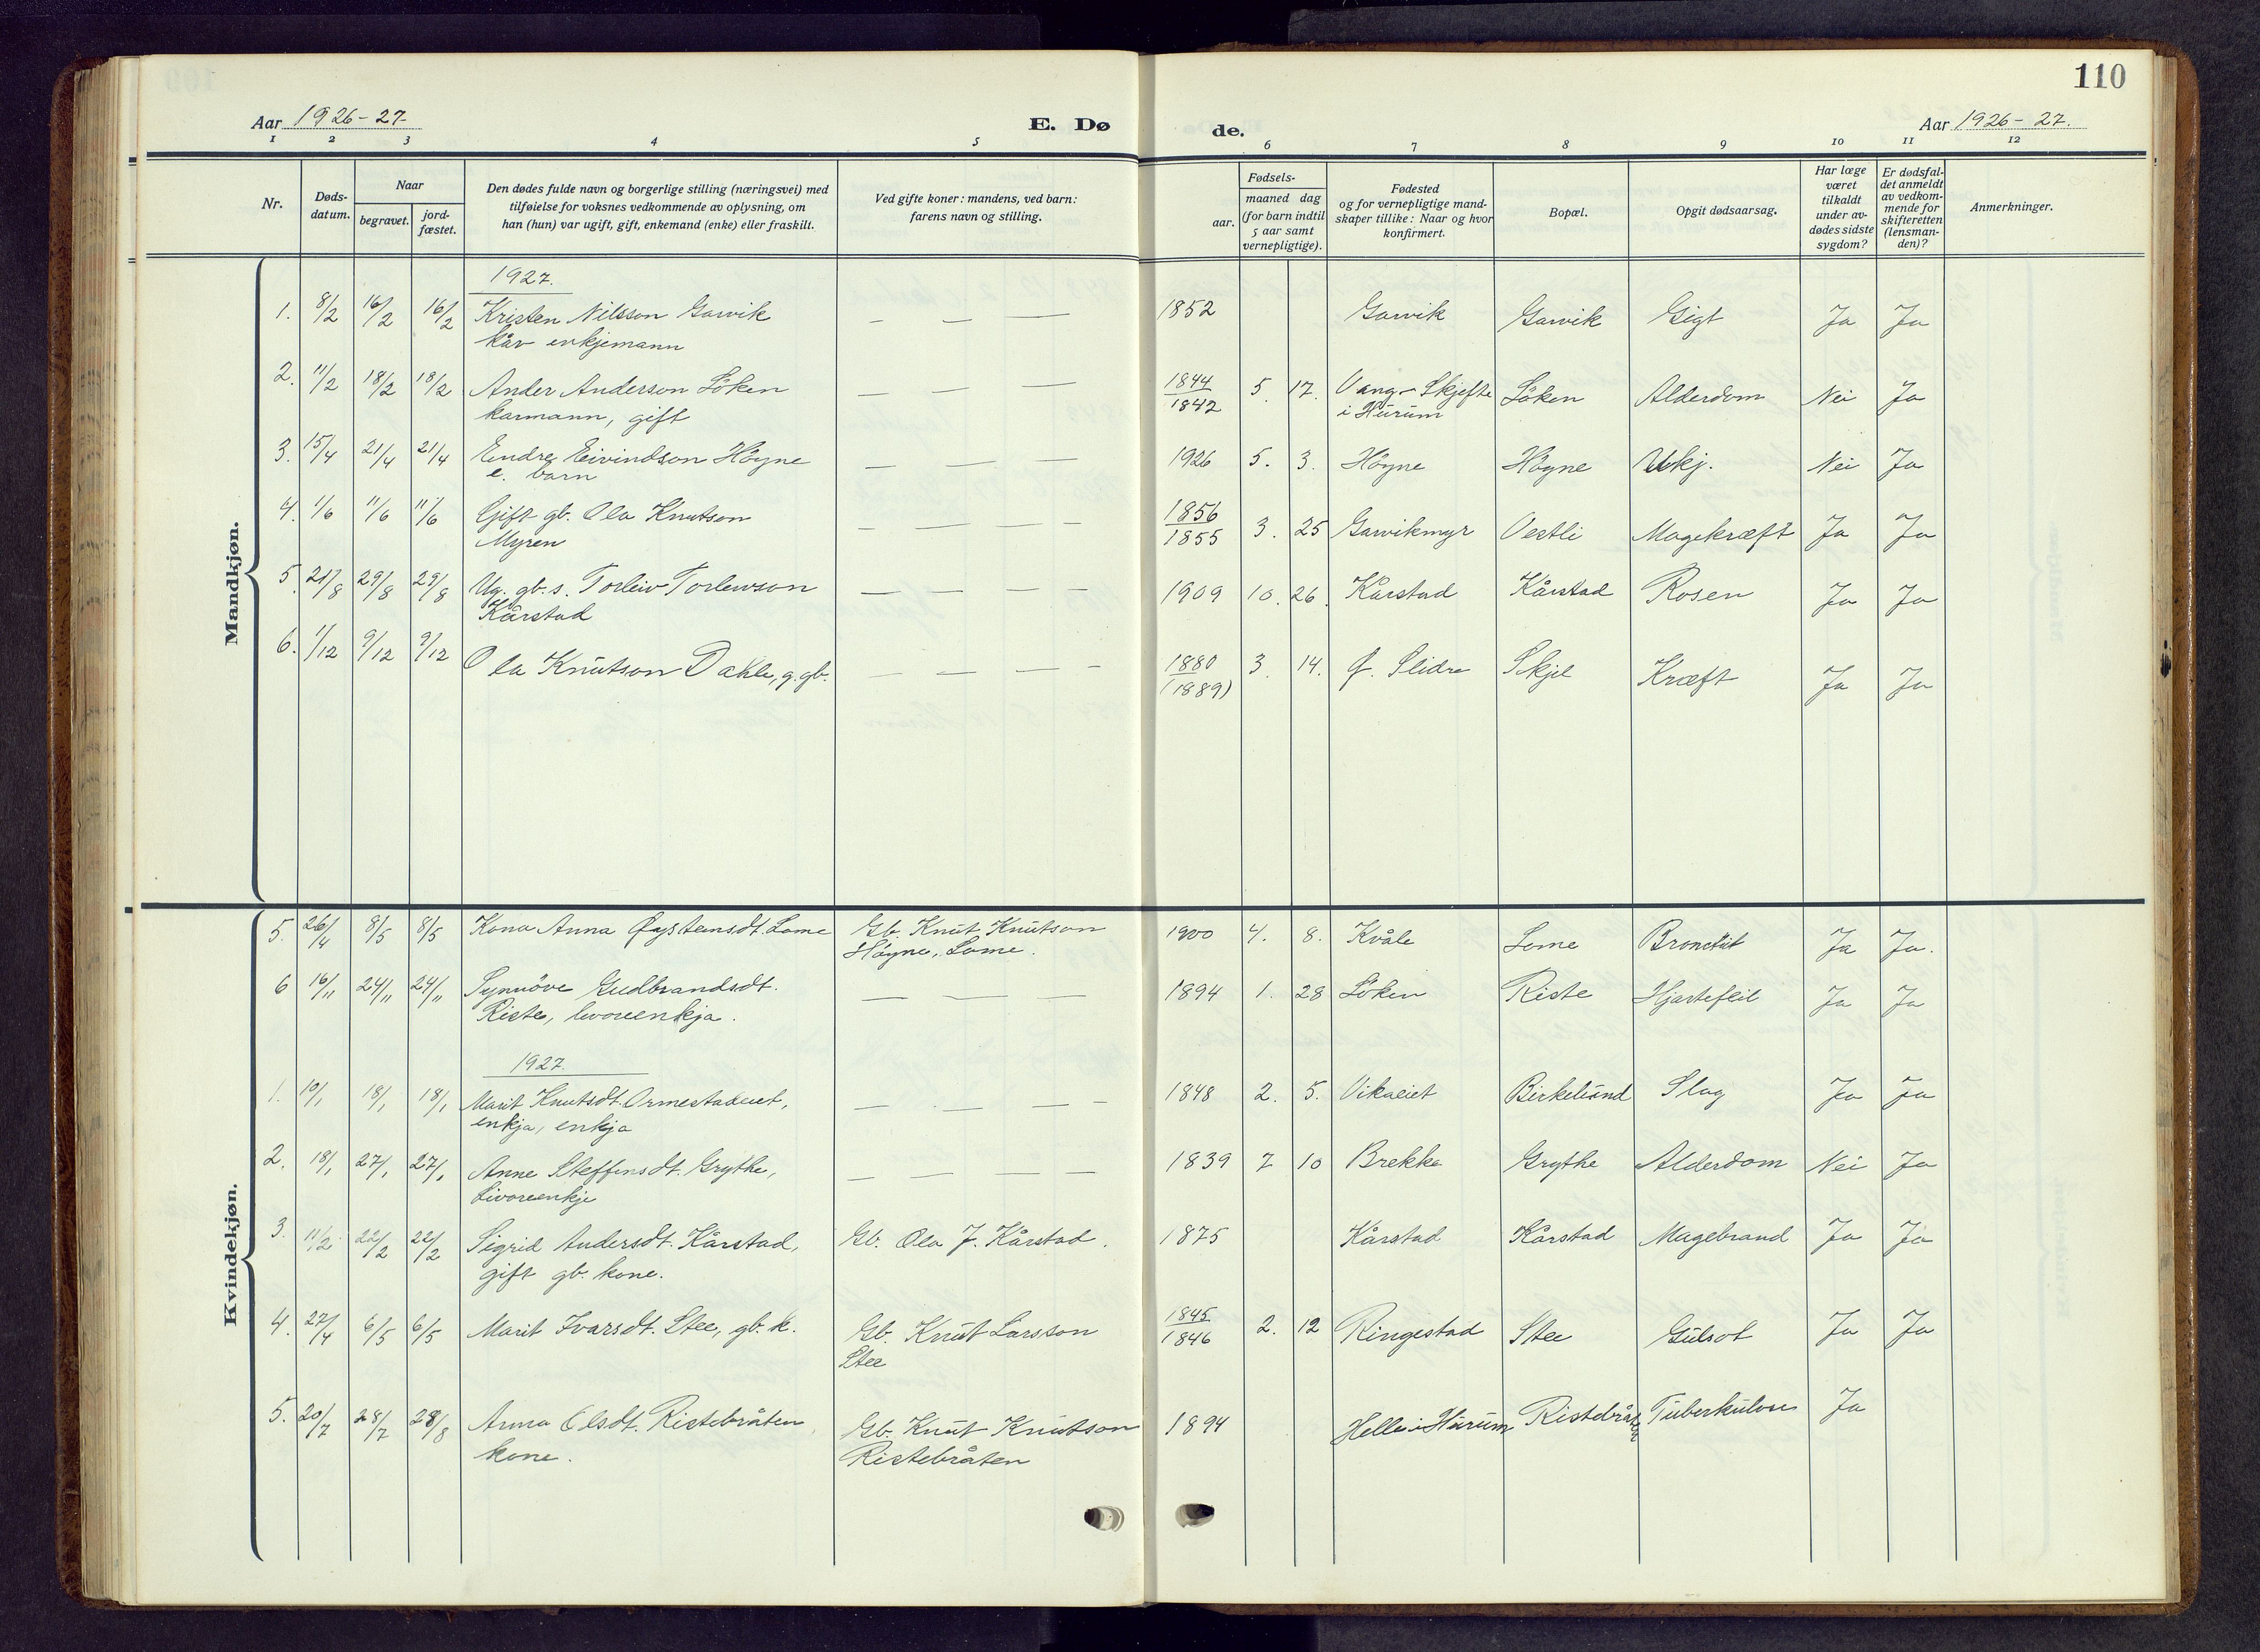 110
Aar 1926-27. E. Dø de. Aar 1926-27.
1 2 3 4 5 6 7 8 9 10 11 12
Nr.
Døds-
datum.
Naar
begravet.
jord-
fæstet.
Den dødes fulde navn og borgerlige stilling (næringsvei) med
tilføielse for voksnes vedkommende av oplysning, om
han (hun) var ugift, gift, enkemand (enke) eller fraskilt.
Ved gifte koner: mandens, ved barn:
farens navn og stilling.
Fødsels-
aar.
maaned dag
(for barn indtil
5 aar samt
vernepligtige).
Fødested
og for vernepligtige mand-
skaper tillike: Naar og hvor
konfirmert.
Bopæl.
Opgit dødsaarsag.
Har læge
været
tilkaldt
under av-
dødes sidste
sygdom?
Er dødsfal-
det anmeldt
av vedkom-
mende for
skifteretten
(lensman-
den)?
Anmerkninger.
Mandkjøn.
1927.
1. 8/2 16/2 16/2 Kristen Nilsson Garvik — — — 1852 Garvik Garvik Gigt Ja Ja
kår enkjemann
2. 11/2 18/2 18/2 Ander Anderson Löken — — — 1844 5. 17. Vang-Skjefte Löken Alderdom Nei Ja
karmann, gift 1842 i Hurum
3. 15/4 21/4 21/4 Endre Eivindson Högne — — — 1926 5. 3. Högne Högne Ukj. Nei Ja
e. barn
4. 1/6 11/6 11/6 Gift gb. Ola Knutson — — — — 1856 3. 25 Garvikmyr Vestli Magekræft Ja Ja
Myren 1855
5. 21/8 29/8 29/8 Ug. gb. s. Torleiv Torlewson — — — — 1909 10. 26. Kårstad Kårstad Rosen Ja Ja
Kårstad
6. 1/12 9/12 9/12 Ola Knutson Dahle, g. gb. — — — — 1880 3. 14. Slidre Skjel Kræft Ja Ja
(1889)
Kvindekjøn.
5. 26/4 8/5 8/5 Kona Anna Øysteinsdt. Lome Gb. Knut Knutson 1900 4. 8. Kvåle Lome Bronckit Ja Ja.
Högne, Lome.
6 16/11 24/11 24/11 Synnöve Gudbrandsdt. — — — — 1894 1. 28 Löken Riste Hjartefeil Ja Ja
Riste, livoreenkja.
1927.
1. 10/1 18/1 18/1 Marit Knutsdt. — — — — 1848 2. 5. Vikaeiet Birkelund Slag Ja Ja
enkja, enkja
2. 18/1 27/1 27/1 Anne Steffensdt. Grythe, — — — — 1839 7 10 Brekke Grythe Alderdom Nei Ja
Livoreenkje
3. 11/2 22/2 22/2 Sigrid Andersdt. Kårstad, Gb. Ola J. Kårstad. 1875 Kårstad Kårstad Magebrand Ja Ja
gift gb. kone.
4. 27/4 6/5 6/5 Marit Ivarsdt. Stee, gb. k. Gb. Knut Larsson 1845 2. 12 Ringestad Stee Gulsot Ja Ja
Stee 1846
5. 20/7 28/7 28/8 Anna Olsdt. Ristebråten Gb. Knut Knutson 1894 Helle i Hurum Ristebråten Tuberkulose Ja
kone. Ristebråten